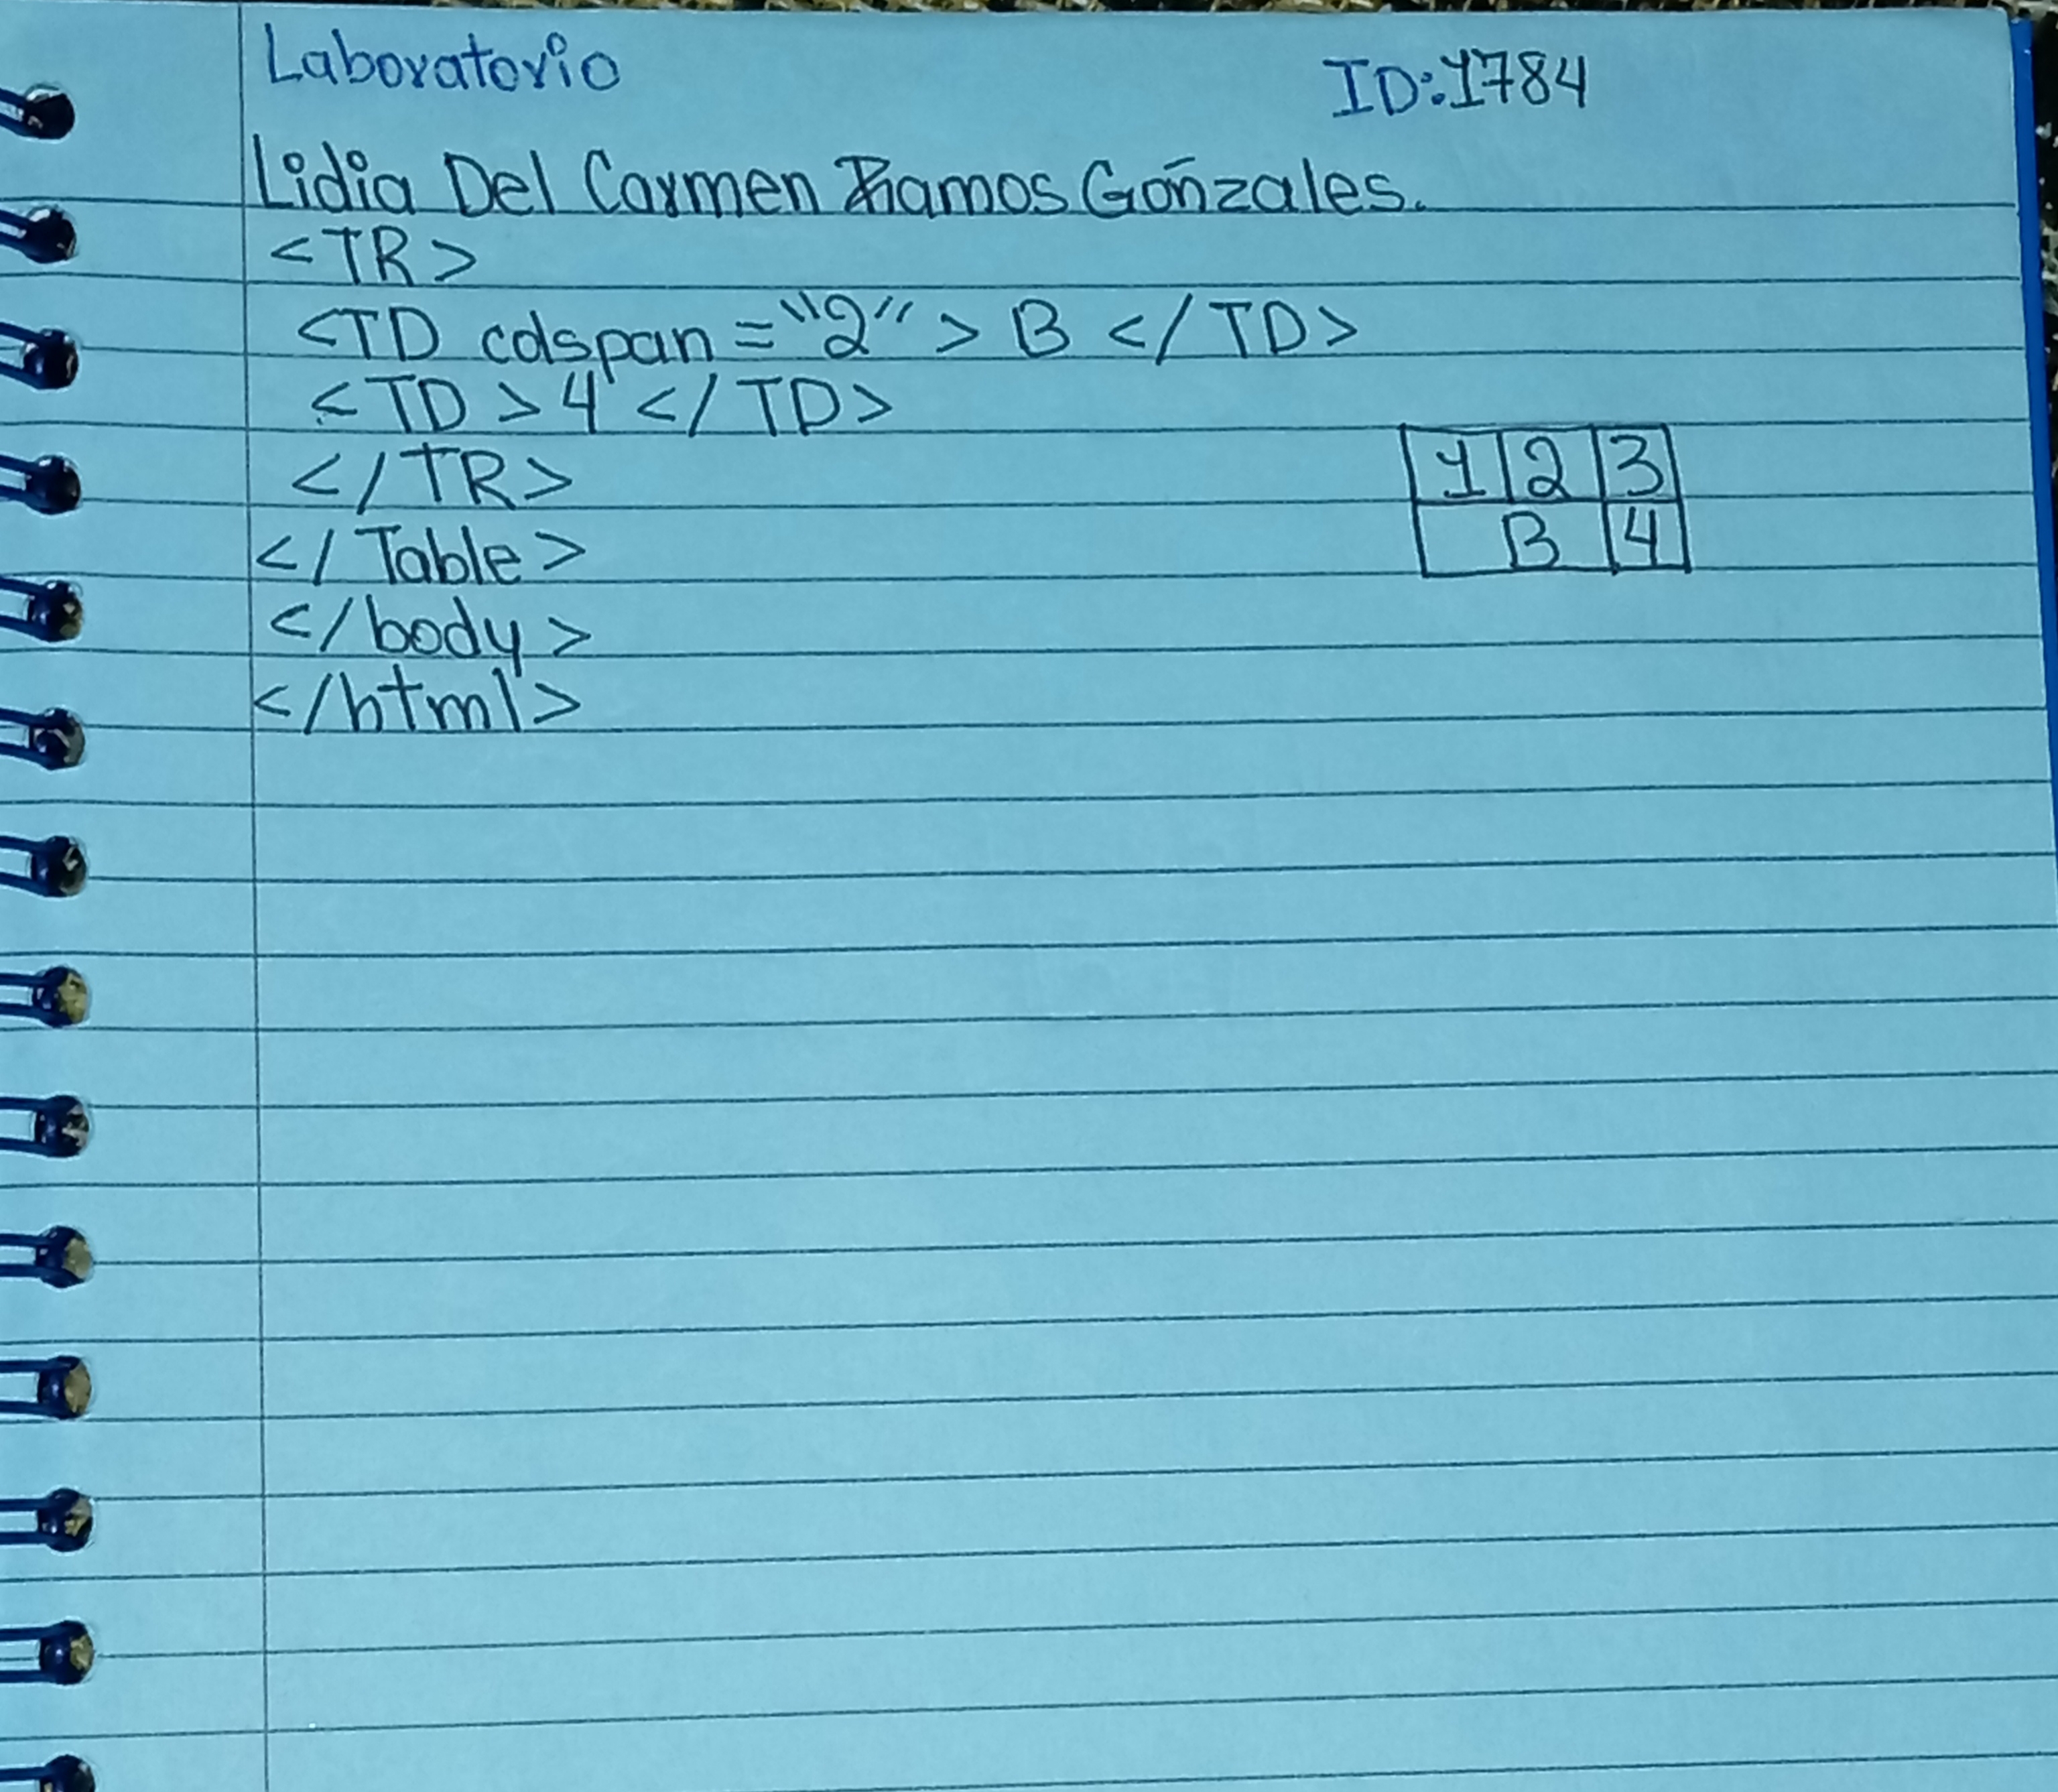 Laboratorio
ID:1784
Lidia Del Carmen Ramos Gonzales.
<TR>
<TD colspan="2"> B </TD>
<TD>4</TD>
</TR>
</Table>
</body>
</html>
1 2 3
B 4